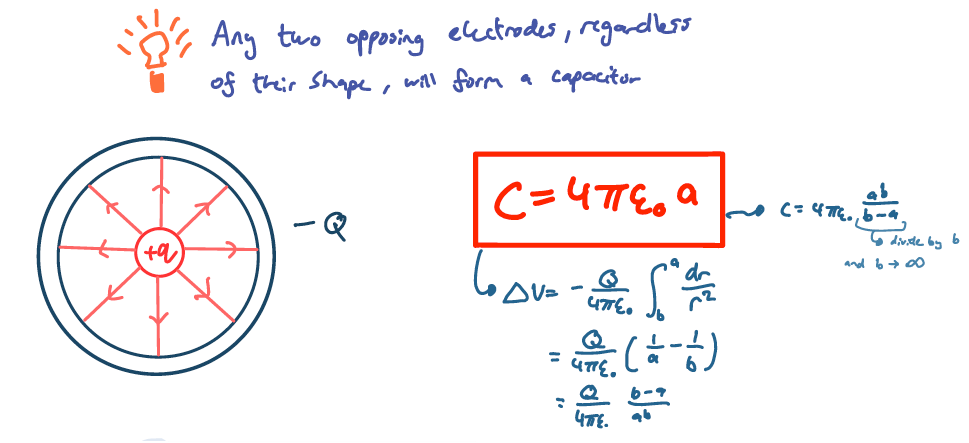 Any two opposing electrodes, regardless
of their shape, will form a capacitor
+q
- Q
C = 4πε₀ a
C = 4πε₀ ab/(b-a)
divide by b
and b → ∞
ΔV = - Q/(4πε₀) ∫_b^a dr/r²
= Q/(4πε₀) (1/a - 1/b)
= Q/(4πε₀) (b-a)/(ab)